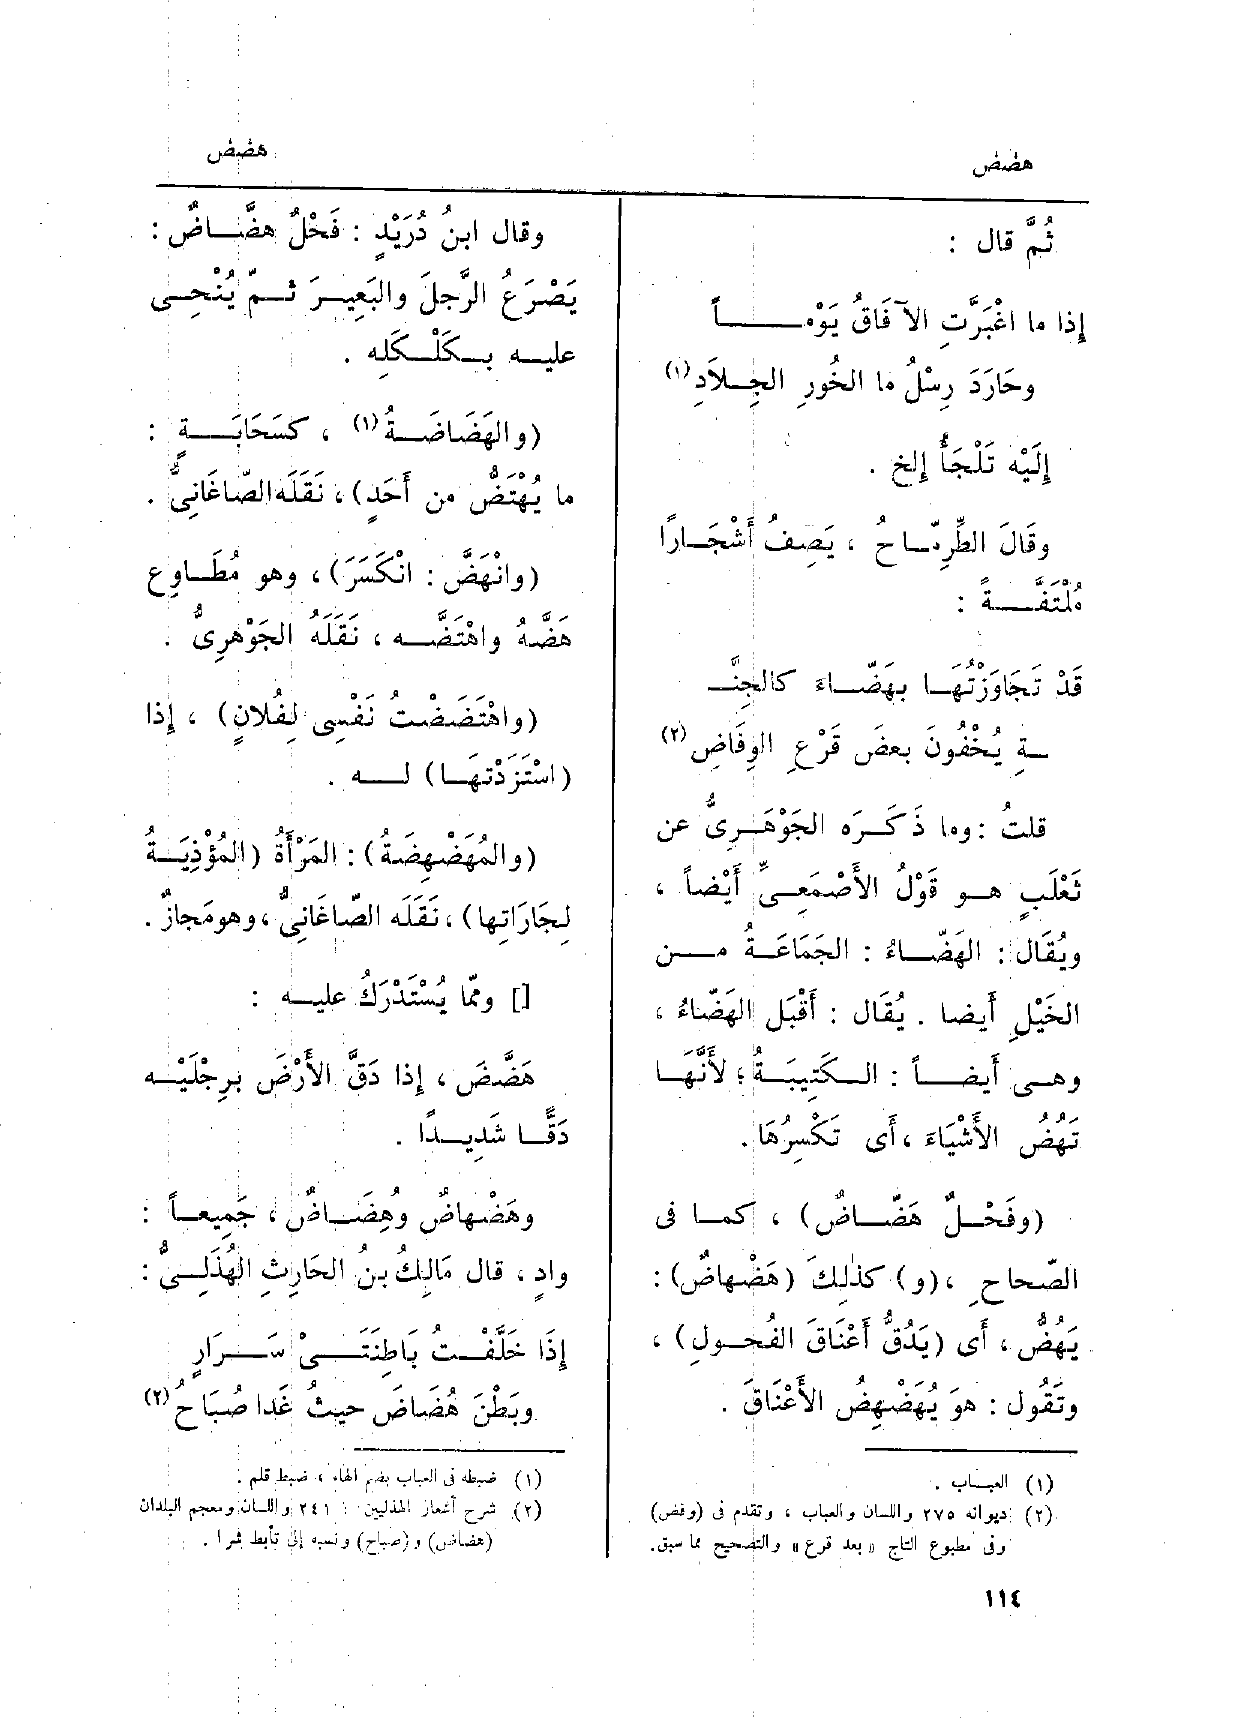 هضض
هضض
ثُمَّ قال :
إذا ما اغْبَرَّتِ الآفَاقُ يَوْمـــــاً
وحَارَدَ رِسْلُ ما الخُورِ الجِـلاَدِ (١)
إِلَيْه تَلْجَأُ إلخ .
وقَالَ الطِّرِمّــاحُ ، يَصِفُ أَشْجَــارًا
مُلْتَفَّــةً :
قَدْ تَجَاوَزْتُهَــا بِهَضَّــاءَ كالجِنَّــ
ــةِ يُخْفُونَ بعضَ قَرْعِ الوِفَاضِ (٢)
قلتُ : وما ذَكَــرَه الجَوْهَــرِىُّ عن
ثَعْلَبٍ هــو قَوْلُ الأَصْمَعِــىِّ أَيْضاً ،
ويُقَال : الهَضّــاءُ : الجَمَاعَــةُ مــن
الخَيْلِ أَيضا . يُقَال : أَقْبَل الهَضّاءُ ،
وهــى أَيضــاً : الــكَتِيبَــةُ ؛ لأَنَّهَــا
تَهُضُّ الأَشْيَاءَ ، أَى تَكْسِرُهَا .
(وفَحْــلٌ هَضّــاضٌ) ، كمــا فى
الصّحاحِ ، (و) كذلِكَ (هَضْهاضٌ) :
يَهُضُّ ، أَى (يَدُقُّ أَعْنَاقَ الفُحــولِ) ،
وتَقُول : هوَ يُهَضْهِضُ الأَعْنَاقَ .
(١) العبــاب .
(٢) ديوانه ٢٧٥ واللسان والعباب ، وتقدم فى (وفض)
وفى مطبوع التاج « بعد قرع » والتصحيح مما سبق .
وقال ابنُ دُرَيْدٍ : فَحْلٌ هضَّــاضٌ :
يَصْرَعُ الرَّجلَ والبَعِيــرَ ثــمّ يُنْحِــى
عليــه بــكَلْــكَلِه .
(والهَضَاضَــةُ (١) ، كسَحَابَــةٍ :
ما يُهْتَضُّ من أَحَدٍ) ، نَقَلَه الصّاغَانِىُّ .
(وانْهَضَّ : انْكَسَرَ) ، وهو مُطَــاوِع
هَضَّهُ واهْتَضَّــه ، نَقَلَهُ الجَوْهَرِىُّ .
(واهْتَضَضْتُ نَفْسِى لِفُلانٍ) ، إذا
(اسْتَزَدْتَهَــا) لــه .
(والمُهَضْهِضَةُ) : المَرْأَةُ (المُؤْذِيَــةُ
لِجَارَاتِها) ، نَقَلَه الصّاغَانِىُّ ، وهو مَجازٌ .
[] وممّا يُسْتَدْرَكُ عليــه :
هَضَّضَ ، إذا دَقَّ الأَرْضَ بِرِجْلَيْــه
دَقًّــا شَدِيــدًا .
وهَضْهاضٌ وهُضَــاضٌ ، جَمِيعــاً :
وادٍ ، قال مَالِكُ بنُ الحَارِثِ الهُذَلِــىُّ :
إِذَا خَلَّفْــتُ بَاطِنَتَــىْ سَــرَارٍ
وبَطْنَ هُضَاضَ حيثُ غَدا صُبَاحُ (٢)
(١) ضبطه فى العباب بضم الهاء ، ضبط قلم .
(٢) شرح أشعار الهذليين : ٢٤١ واللسان ومعجم البلدان
(هضاض) و (صباح) ونسبه إلى تأبط شرا .
١١٤